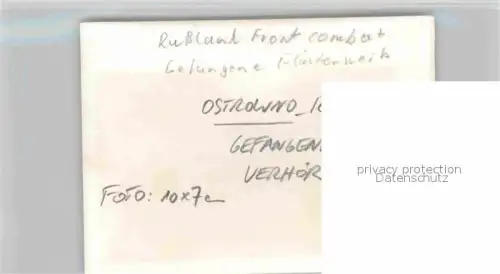 Rußland Front combat
Gefangene
OSTROWNO
GEFANGEN
VERHÖR
FOTO: 10x7c
privacy protection
Datenschutz